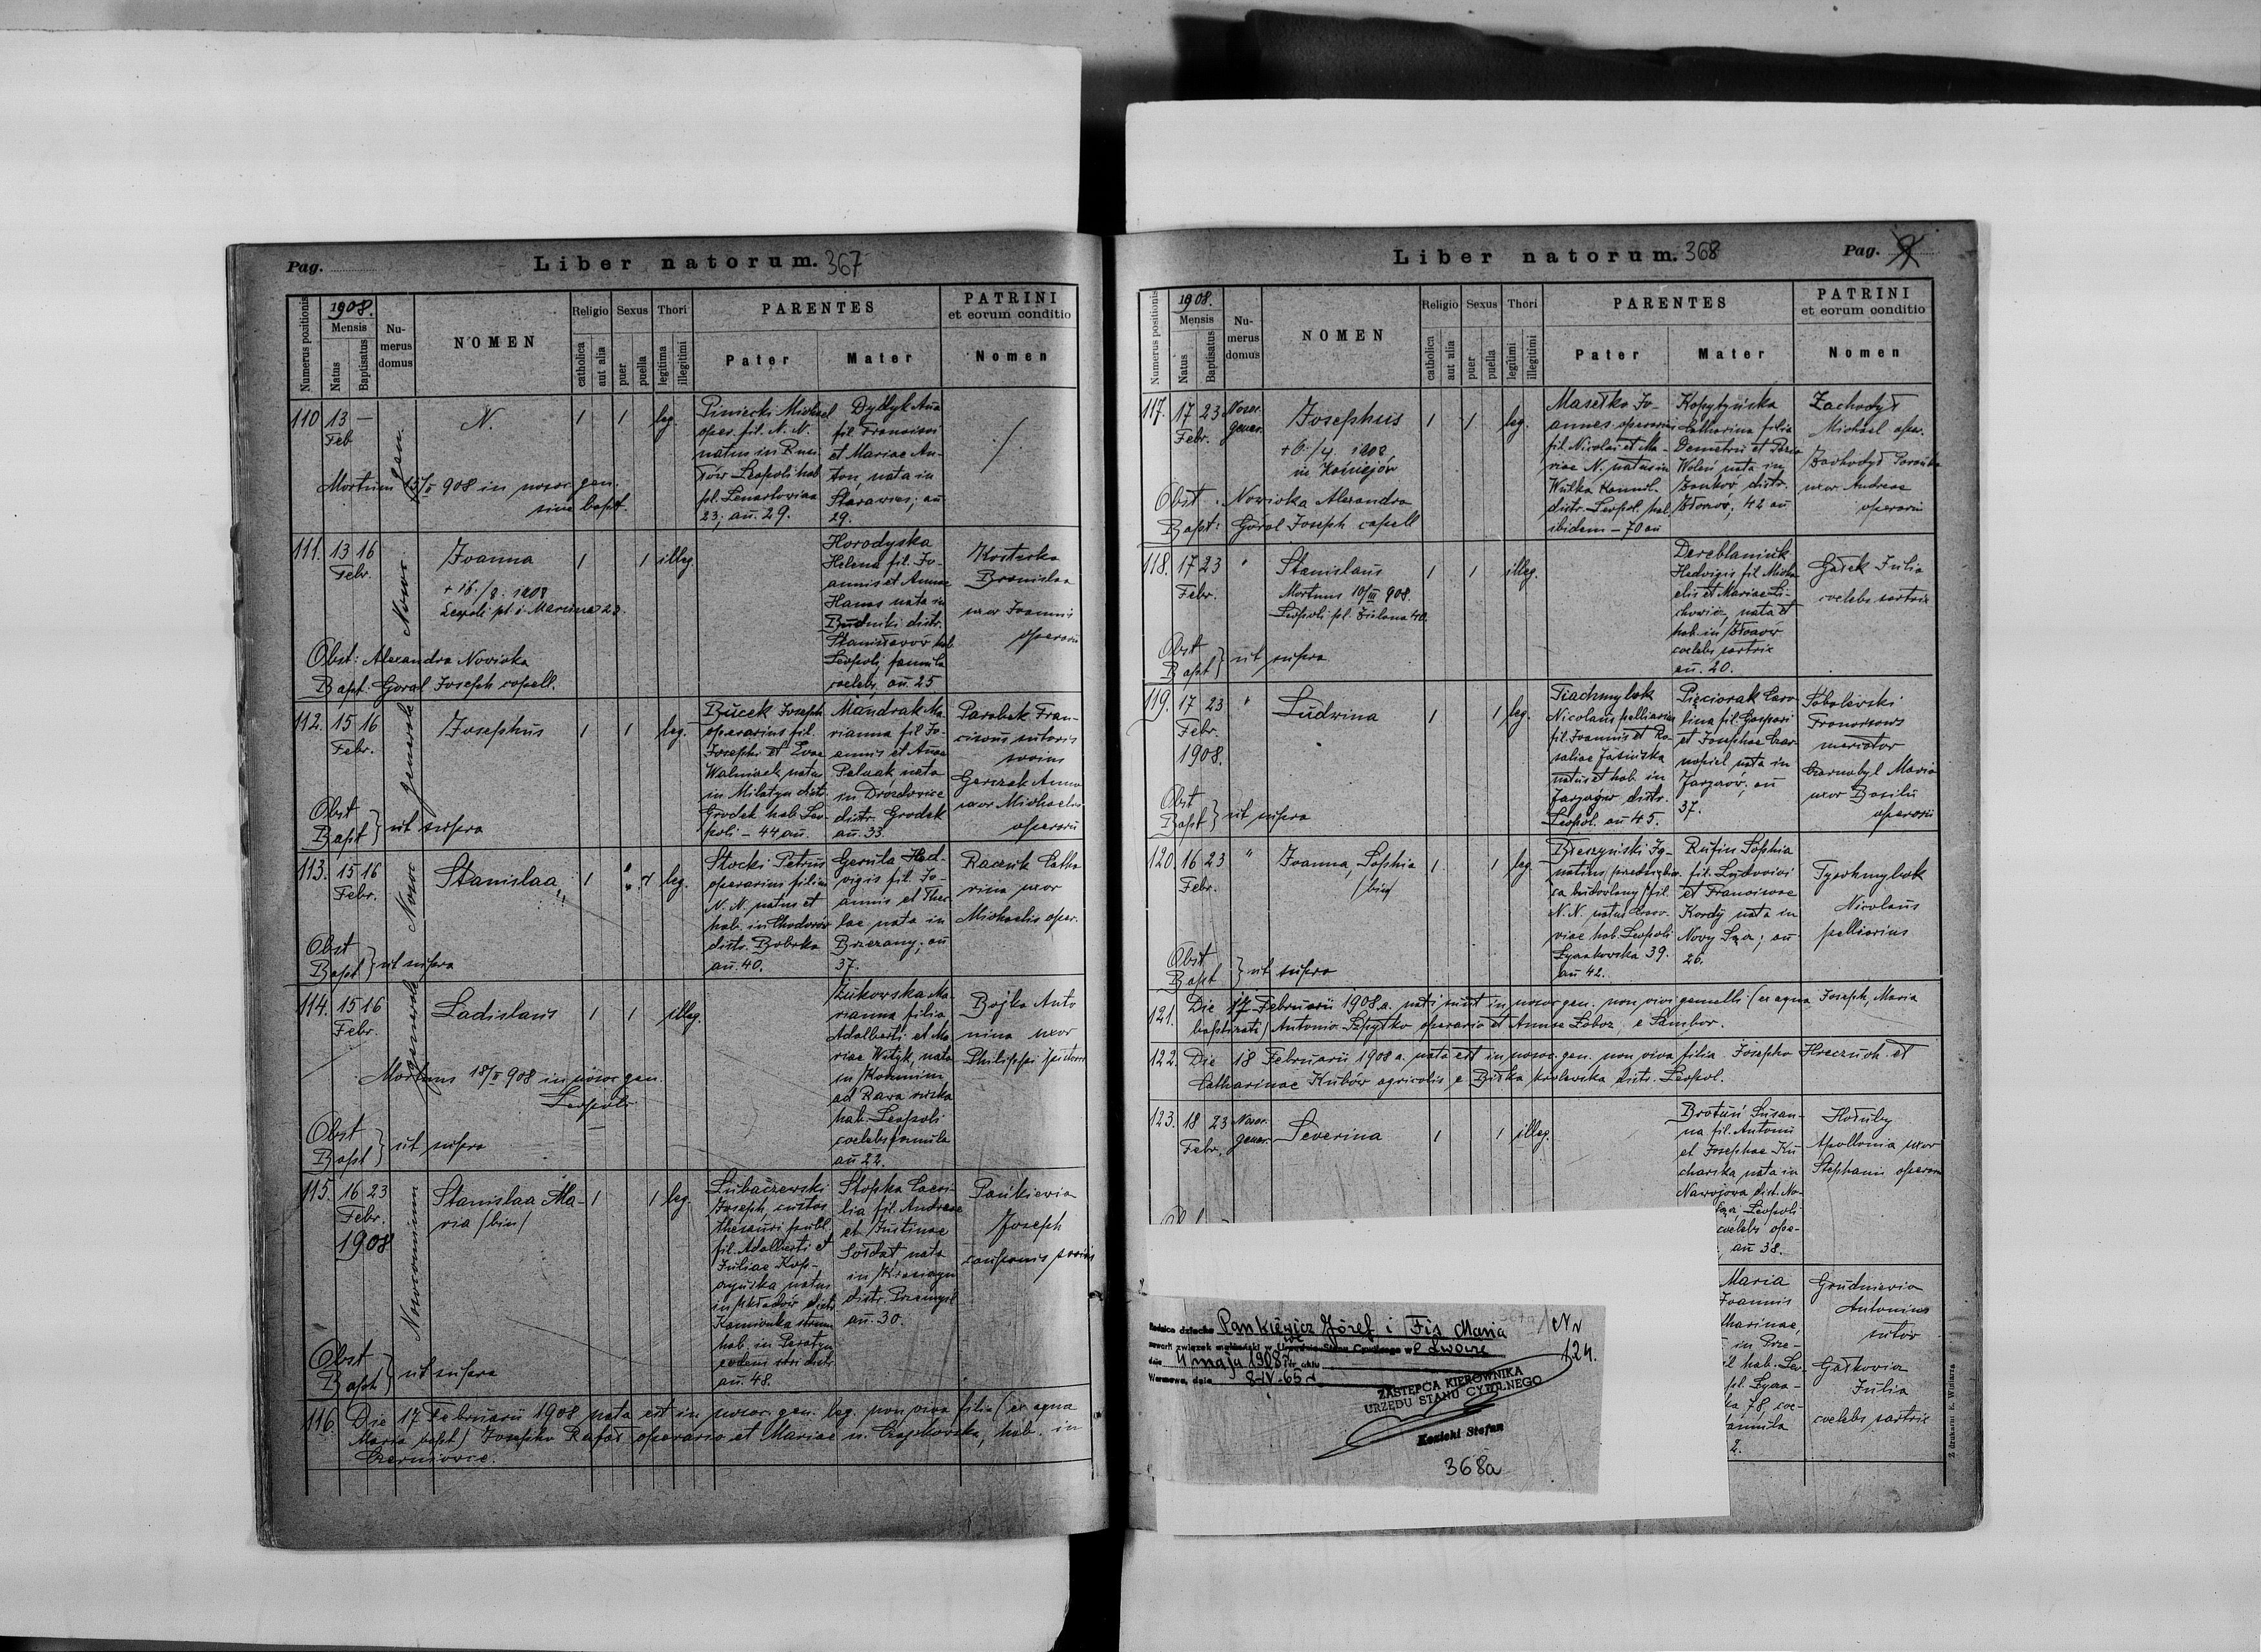 Pag.
Liber natorum. 367
Numerus positionis
1908.
Mensis
Natus
Baptisatus
Numerus domus
NOMEN
Religio
catholica
aut alia
Sexus
puer
puella
Thori
legitima
illegitimi
PARENTES
Pater
Mater
PATRINI
et eorum conditio
Nomen
110 13 —
Feb.
N. 1 1 leg.
Piniecki Michael
oper. fil. N. N.
natus in
Leopoli hab.
23; añ. 29.
Dydyk Aña
fil. Francisci
et Mariae An-
ton, nata in
añ.
29.
Mortuum 15/II 908 in nosoc. gen.
sine bapt.
111. 13 16
Febr.
Joanna
+ 16./8. 1908
Leopoli pl.
1 1 illeg.
Horodyska
Helena fil. Jo-
annis et Annae
Hanas nata in
Budniki distr.
Stanisławów hab.
Leopoli, famula
coelebs, añ. 25
Kosterka
Bronislaa
uxor Joannis
operarii
Obst: Alexandra Novicka
Bapt. Goral Joseph capell.
112. 15 16
Febr.
Josephus 1 1 leg.
Bucek Joseph
operarius fil.
Josephi et Evae
Walniaek, natus
in Milatyn distr.
Grodek hab. Leo-
poli – 44 añ.
Mandrak Ma-
rianna fil. Jo-
annis et Annae
Pelaak nata
in Drozdovice
distr. Grodek
añ. 33
Parobek Fran-
ciscus sutoris
socius
Gerczak Anna
uxor Michaelis
operarii
Obst
Bapt } ut supra
113. 15 16
Febr.
Stanislaa 1 leg.
Stocki Petrus
operarius filius
N. N. natus et
hab. in Chodorów
distr. Bobrka
añ. 40.
Gerula Hed-
vigis fil. Jo-
annis et Thec-
lae nata in
Brzezany; añ
37.
Raczuk Catha
rina uxor
Michaelis oper.
Obst
Bapt } ut supra
114. 15 16
Febr.
Ladislaus 1 1 illeg.
Żukowska Ma-
rianna filia
Adalberti et Ma-
riae Wityk, nata
in
ad Rawa ruska
hab. Leopoli
coelebs famula
añ 22.
Bojko Anto
nina uxor
Philippi
Mortuus 18/II 908 in nosoc. gen.
Leopoli
Obst
Bapt } ut supra
115. 16 23
Febr.
1908
Stanislaa Ma-
ria /bin/
1 1 leg.
Lubaczewski
Joseph, custos
thesauri publ.
fil. Adalberti et
Juliae Kop-
czyńska natus
in distr.
Kamionka strum.
hab. in Peratyn
eodem distr.
añ. 48.
Stopka Caeci-
lia fil. Andreae
et Justinae
Sołdat nata
in
distr. Przemysl
añ. 30.
Pankiewicz
Joseph
cauponis socius
Obst
Bapt } ut supra
116. Die 17 Februarii 1908 nata est in nosoc. gen. leg. non viva filia (ex aqua
Maria bapt.) Josepho Rafał operario et Mariae n. Czajkowska, hab. in
Czerniovce.
Nosoc. gen.
Nosoc. generale
Nosocomium
Liber natorum. 368
Pag.
Numerus positionis
1908.
Mensis
Natus
Baptisatus
Numerus domus
NOMEN
Religio
catholica
aut alia
Sexus
puer
puella
Thori
legitimi
illegitimi
PARENTES
Pater
Mater
PATRINI
et eorum conditio
Nomen
117. 17 23
Febr.
Nosoc.
gener.
Josephus 1 1 leg.
+ 6./4. 1908
in
Masełko Jo-
annes operarius
fil. Nicolai et Ma-
riae N. natus in
Wulka
distr. Leopol. hab.
ibidem – 70 añ
Kopytyńska
Catharina filia
Demetrii et
nata in
distr.
Złoczów; 42 añ
Zachodył
Michael oper.
Zachodył
uxor Andreae
operarii
Obst. Novicka Alexandra
Bapt: Góral Joseph capell
118. 17 23 "
Febr.
Stanislaus 1 1 illeg.
Mortuus 10/III 908.
Leopoli pl. Zielona 40.
Dereblaniuk
Hedvigis fil. Micha-
elis et Mariae Li-
chowic, nata et
hab. in Złoczów
coelebs sartrix
añ. 20.
Gałek Julia
coelebs sartrix
Obst
Bapt } ut supra
119. 17 23 "
Febr.
1908.
Ludvina 1 1 leg.
Tiachmybok
Nicolaus pelliarius
fil. Joannis et Ro-
saliae Jasińska
natus et hab. in
distr.
Leopol. añ 45.
Pięciorak Caro-
lina fil. Gaspari
et Josephae Czar-
nopiel nata in
añ
37.
Sobolewski
Franciscus
mercator
Czarnobyl Maria
uxor Basilii
operarii
Obst
Bapt } ut supra
120. 16 23 "
Febr.
Joanna, Sophia
/bin/
1 1 leg.
Breszyński Ig-
natius /przedsiębior-
ca budovlany/ fil.
N. N. natus Craco-
viae hab. Leopoli
Łyczakowska 39.
añ 42.
Rufin Sophia
fil. Ludovici
et Franciscae
Kordy nata in
Novy Sącz; añ
26.
Tyachmybok
Nicolaus
pelliarius
Obst
Bapt } ut supra
121. Die 17 Februarii 1908 a. nati sunt in nosoc. gen. non vivi gemelli (ex aqua Joseph, Maria
baptizati) Antonio Szpytko operario et Annae Łoboz, e Sambor.
122. Die 18 Februarii 1908 a. nata est in nosoc. gen. non viva filia Josepho Hreczuch et
Catharinae Kubów agricolis e Biłka krolewska distr. Leopol.
123. 18 23
Febr.
Nosoc.
gener.
Severina 1 1 illeg.
Brotuń Susan-
na fil. Antonii
et Josephae Ku
charska, nata in
Nawojowa dist. No-
Leopoli
coelebs ope-
añ 38.
Hołuby
Apollonia uxor
Stephani operarii
Maria
Joannis
tharinae,
in Prze-
hab. Leo
pl. Łycza-
ka 78, coe-
famula
2.
Grudniewicz
Antonius
sutor
Gałkowicz
Julia
coelebs sartrix
Rodzice dziecka Pankiewicz Józef i Fis Maria
zawarli związek małżeński w Urzędzie Stanu Cywilnego w Lwowie
dnia 4 maja 1908 r Nr aktu
Warszawa, dnia 8-IV-65 r
Nr
124.
ZASTĘPCA KIEROWNIKA
URZĘDU STANU CYWILNEGO
Kozicki Stefan
368a
Z drukarni E. Winiarza